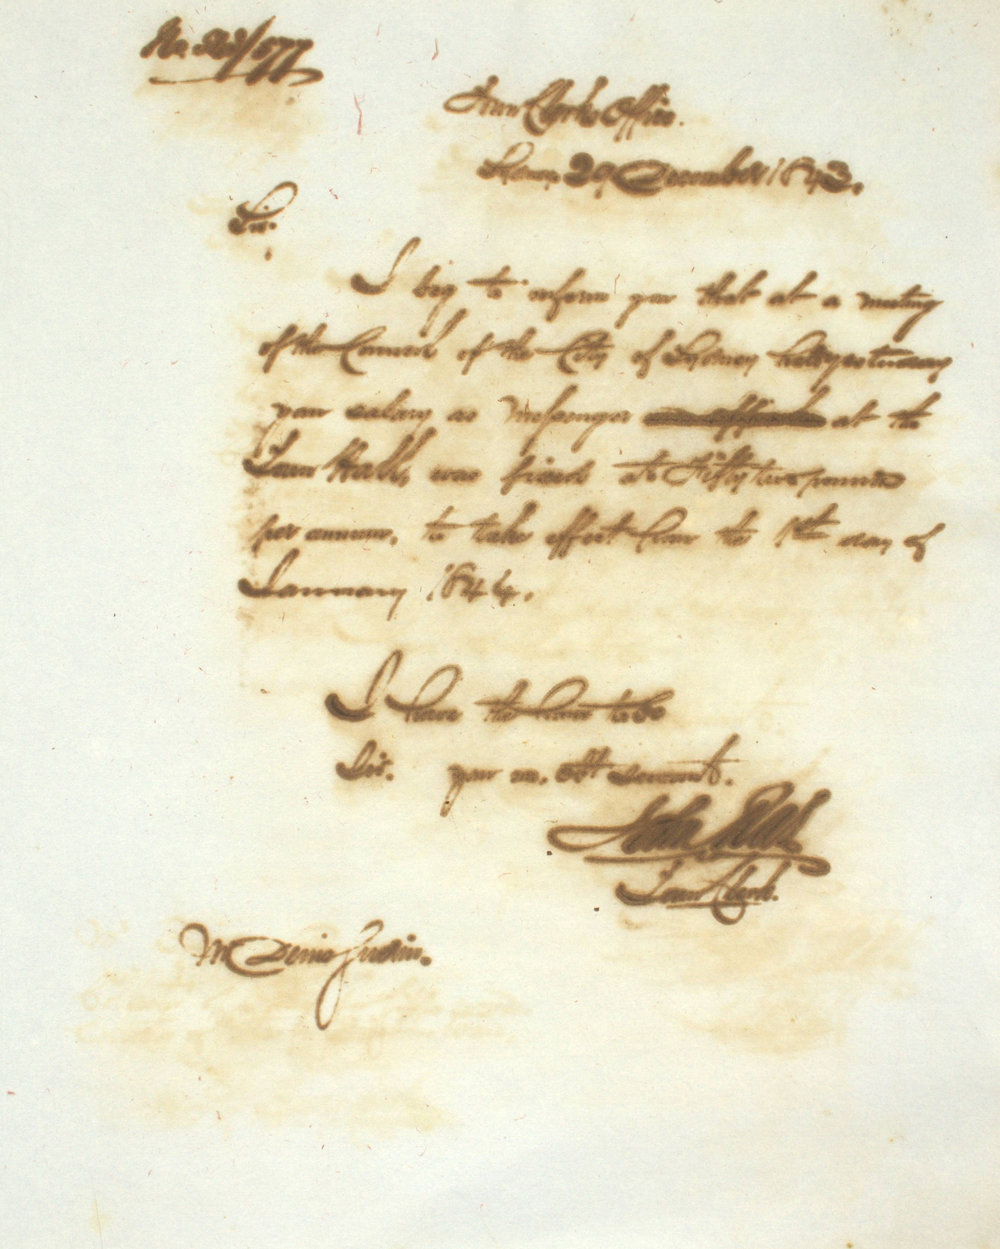 Town Clerk's Office.
Sydney 29 December 1843.
Sir.
I beg to inform you that at a meeting
of the Council of the City of Sydney held yesterday
your salary as Messenger at the
Town Hall, was fixed at Fifty two pounds
per annum, to take effect from the 1st day of
January 1844.
I have the honor to be
Sir. your mo. obt servant.
Town Clerk.
Mr Denis